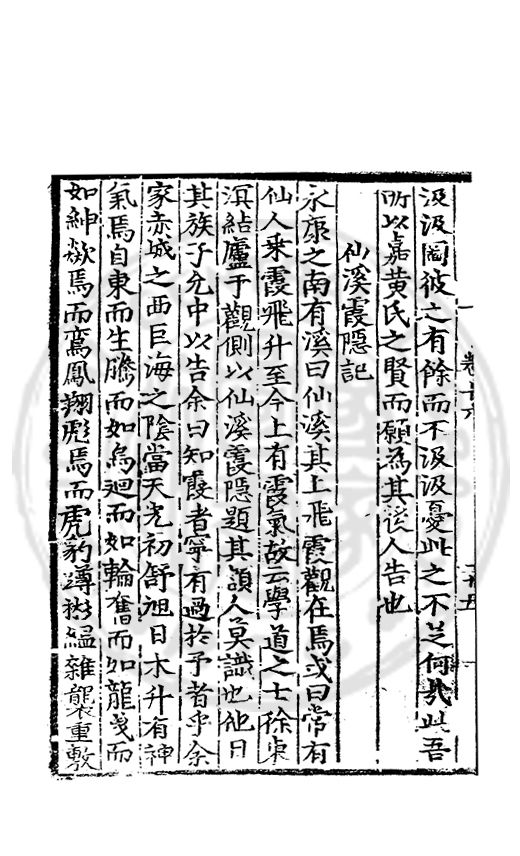 汲汲圖彼之有餘而不汲汲憂此之不足何哉此吾
所以嘉黃氏之賢而願為其後人告也
仙溪霞隱記
永康之南有溪曰仙溪其上飛霞觀在焉或曰常有
仙人乘霞飛升至今上有霞氣故云學道之士徐東
溟結廬于觀側以仙溪霞隱題其額人莫識也他日
其族子允中以告余曰知霞者寧有過於予者乎余
家赤城之西巨海之陰當天光初舒旭日未升有神
氣焉自東而生騰而如烏迴而如輪奮而如龍戛而
如紳歘焉而鸞鳳翔彪焉而虎豹蹲絪縕雜襲重敷